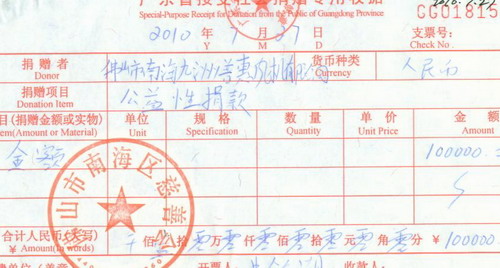 广东省接受社会捐赠专用收据
Special-Purpose Receipt for Donation from the Public of Guangdong Province
GG01815
2010 年 7 月 27 日
Y M D
支票号:
Check No.
捐赠者
Donor
佛山市南海九洲普惠
公司
货币种类
Currency
人民币
捐赠项目
Donation Item
公益性捐款
目(捐赠金额或实物)
tem(Amount or Material)
单位
Unit
规格
Specification
数量
Quantity
单价
Unit Price
金额
Amount
金额
100000.
合计人民币(大写)
¥ Amount(in words)
佰 拾零万零仟零佰零拾零元零角零分
¥ 100000.
山市南海区慈善
开票人
收款人: